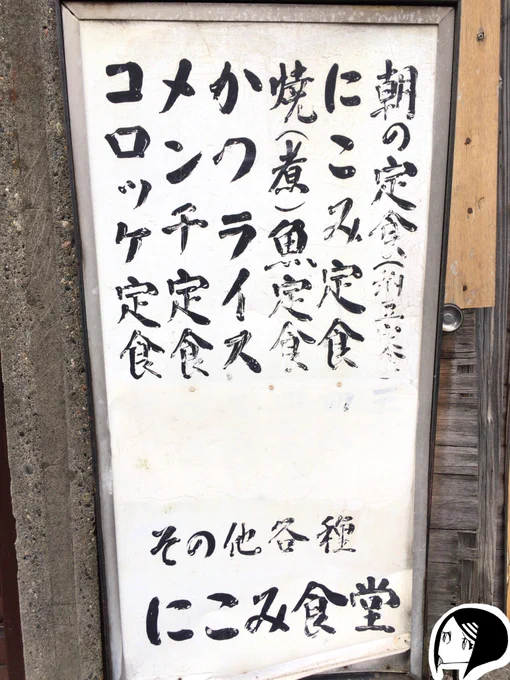 朝の定食
にこみ定食
焼(煮)魚定食
かつライス
メンチ定食
コロッケ定食
その他各種
にこみ食堂